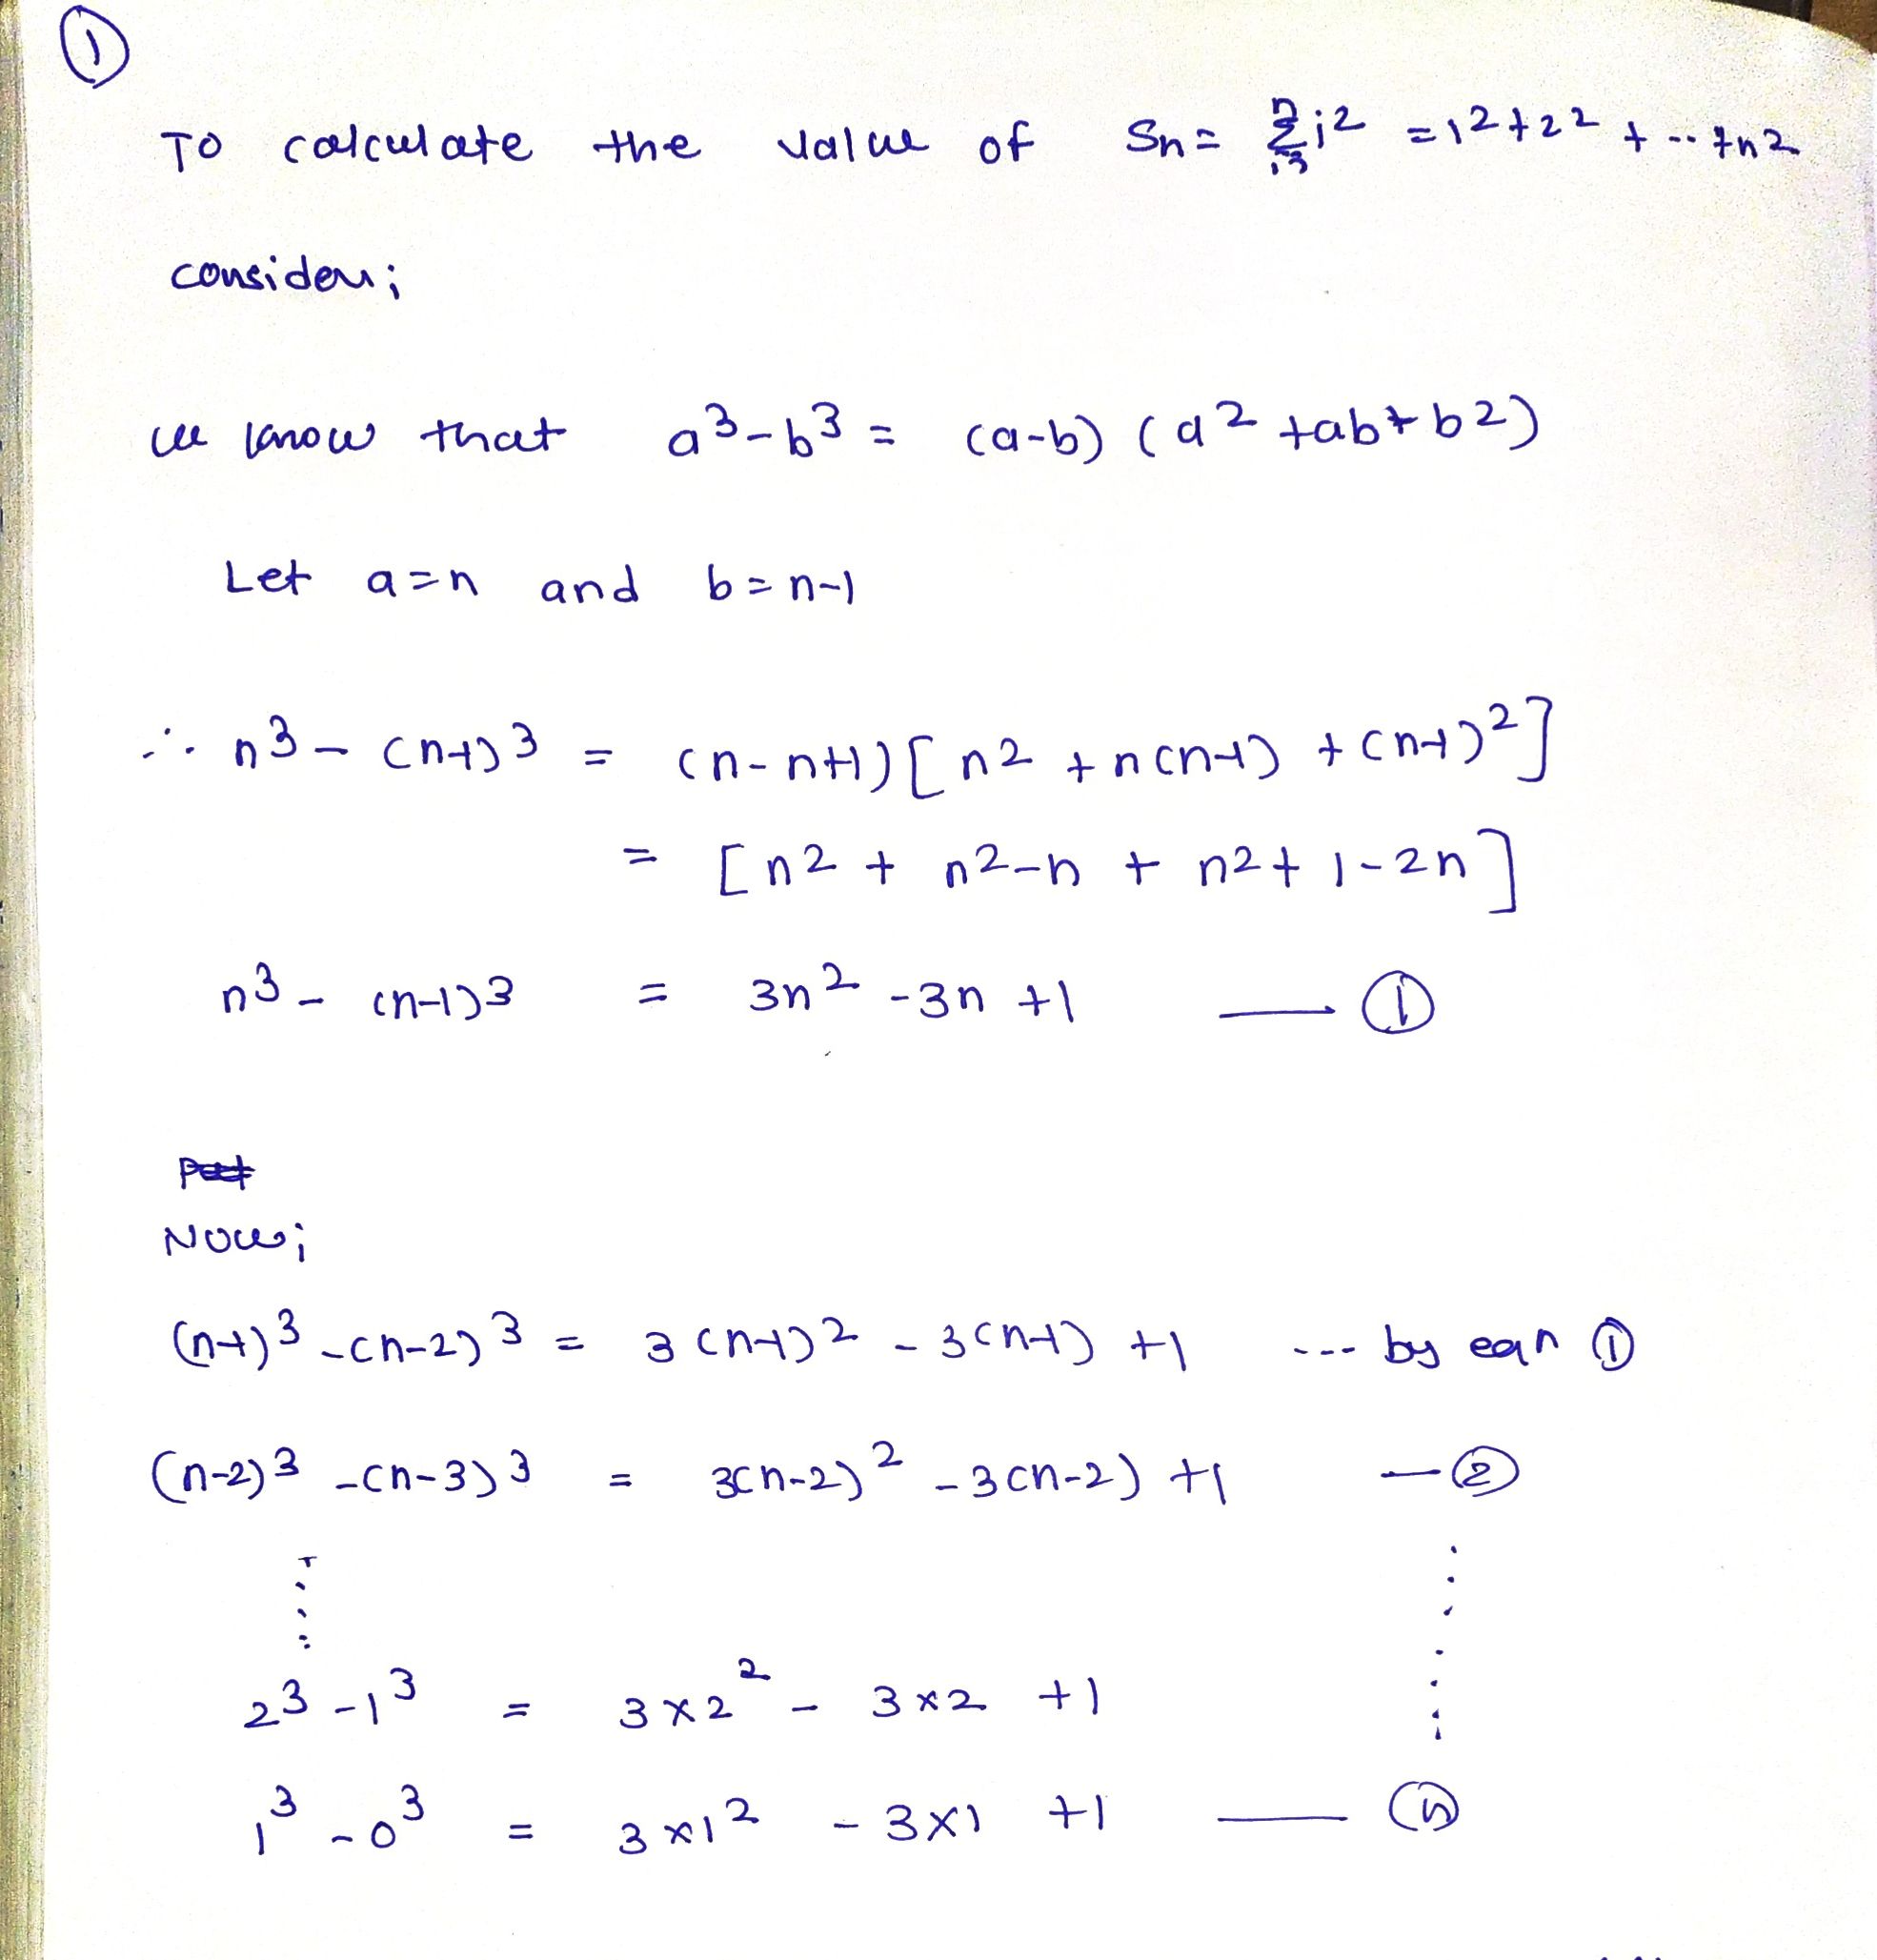 ①
To calculate the value of Sn = Σ i² = 1² + 2² + .. + n²
consider;
we know that a³ - b³ = (a-b) (a² + ab + b²)
Let a = n and b = n-1
∴ n³ - (n-1)³ = (n - n+1) [ n² + n(n-1) + (n-1)² ]
= [ n² + n² - n + n² + 1 - 2n ]
n³ - (n-1)³ = 3n² - 3n + 1 — ①
Now;
(n-1)³ - (n-2)³ = 3(n-1)² - 3(n-1) + 1 --- by eqn ①
(n-2)³ - (n-3)³ = 3(n-2)² - 3(n-2) + 1 — ②
2³ - 1³ = 3×2² - 3×2 + 1
1³ - 0³ = 3×1² - 3×1 + 1 — ⓝ